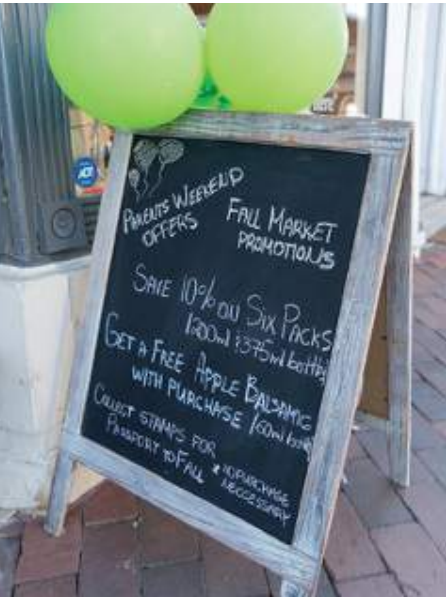 ADT
PARENTS WEEKEND
OFFERS
FALL MARKET
PROMOTIONS
SAVE 10% ON SIX PACKS
200ml & 375ml bottles
GET A FREE APPLE BALSAMIC
WITH PURCHASE 60ml bottle
COLLECT STAMPS FOR
PASSPORT TO FALL
* NO PURCHASE
NECCESSARY